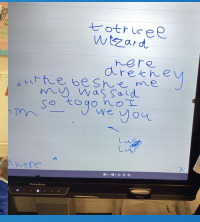 totricee
wizard
here
arethey
the beshe me
my was said
so togo no I
we you
here